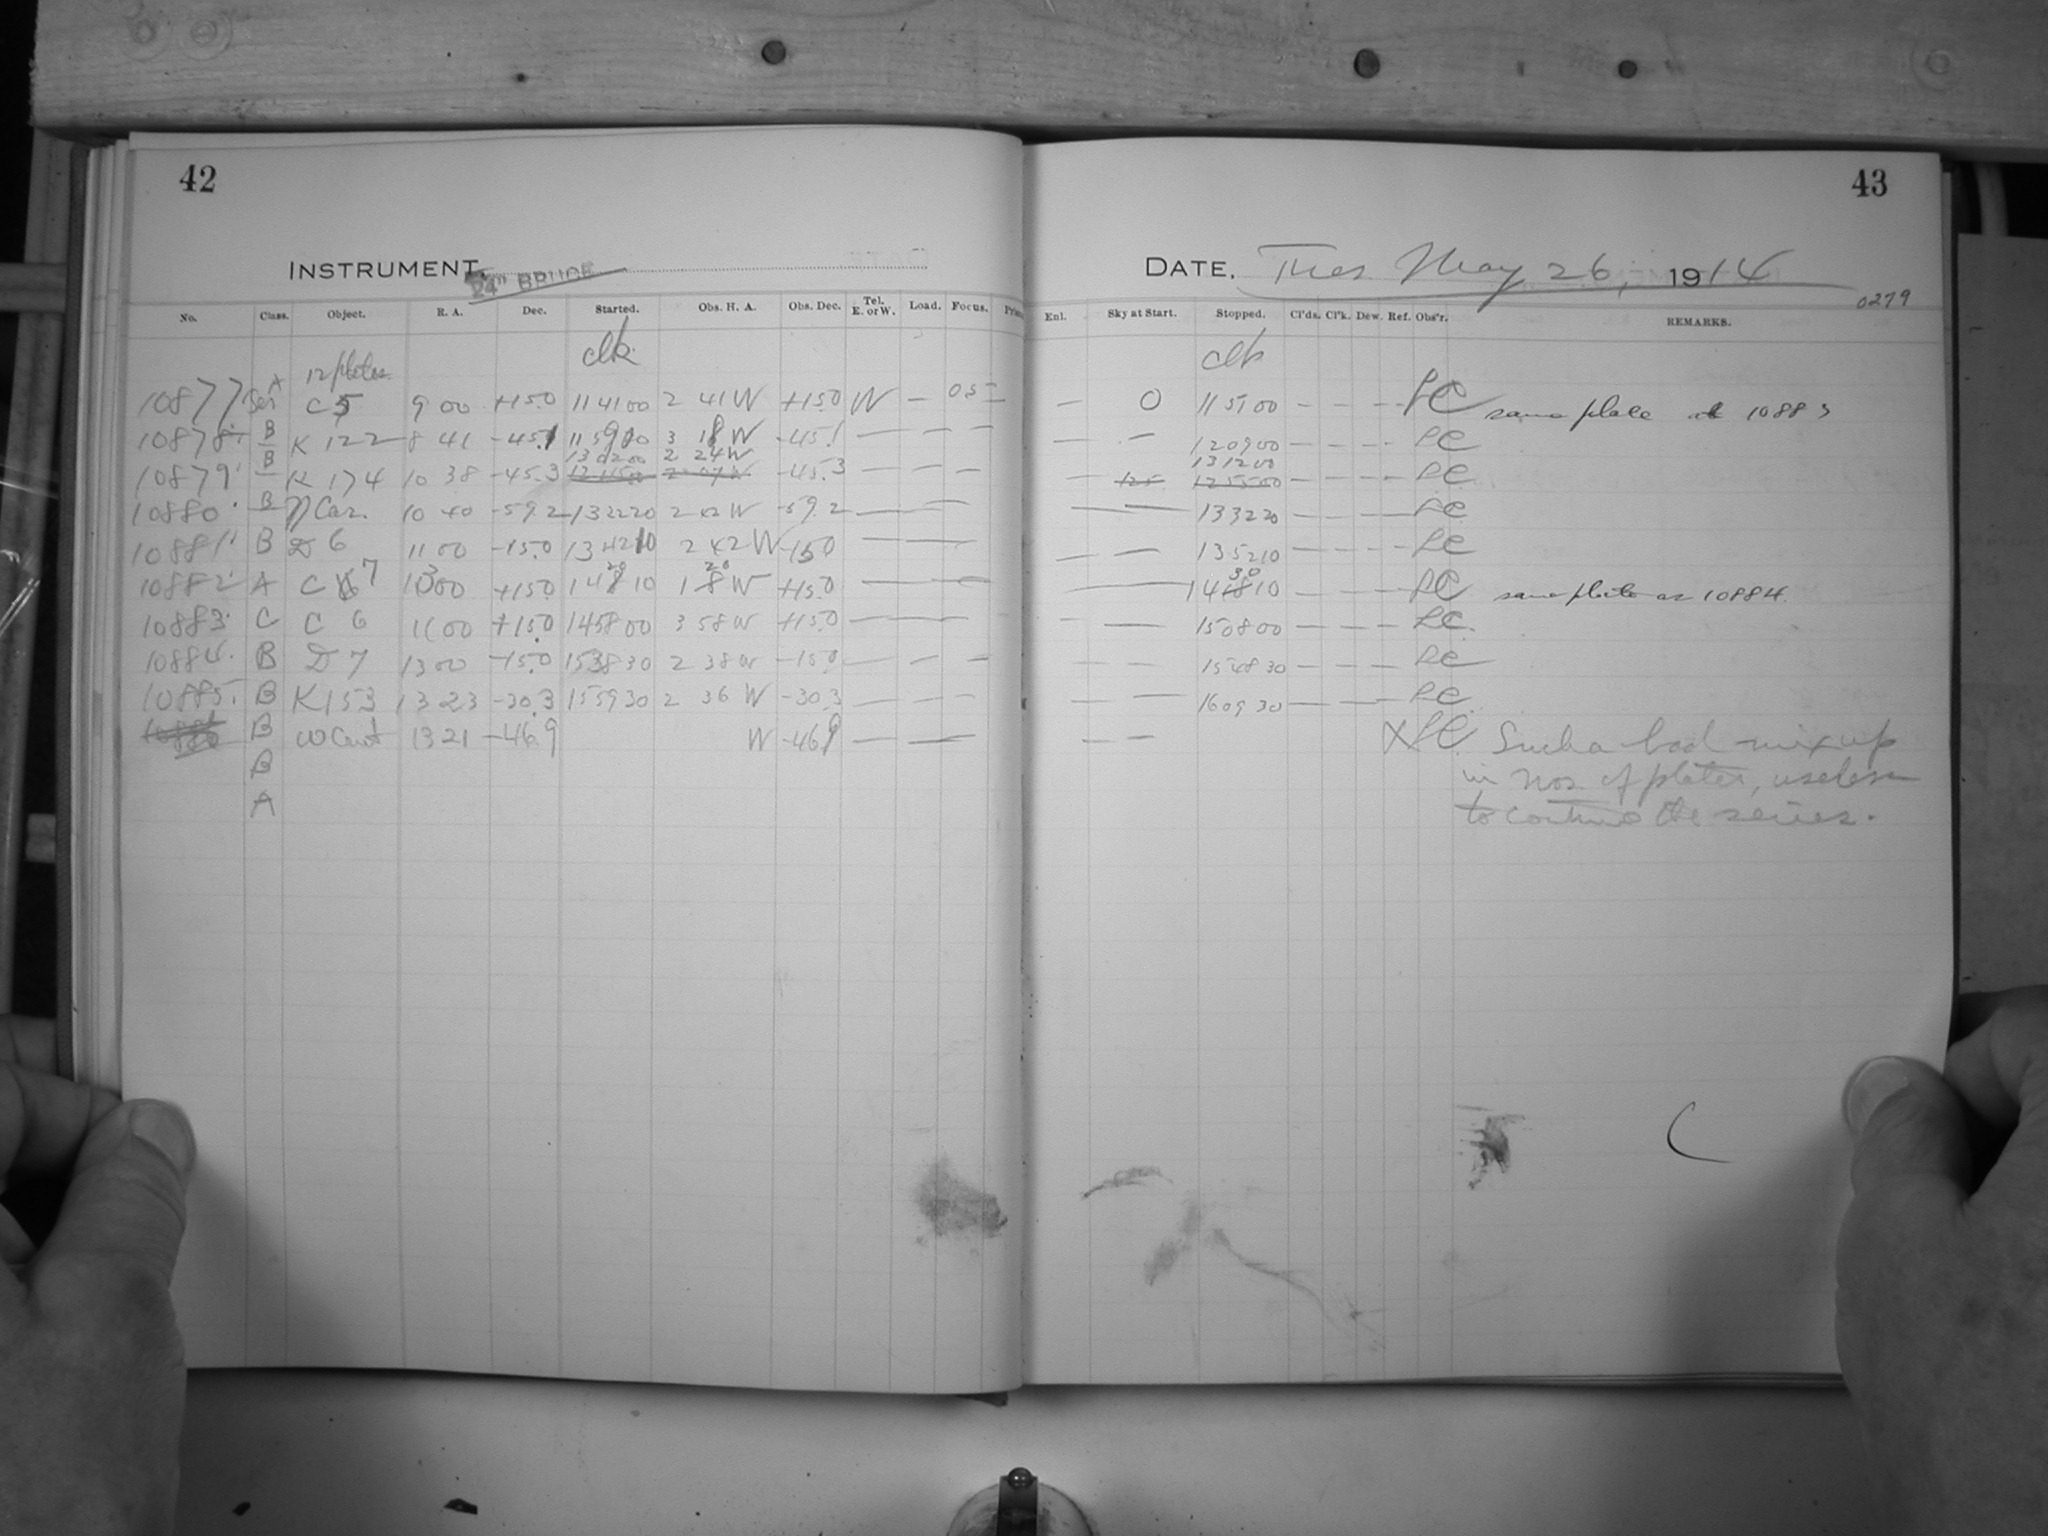 42
INSTRUMENT. 24" BRUCE
No. Class. Object. R. A. Dec. Started. Obs. H. A. Obs. Dec. Tel. E. or W. Load. Focus.
12 plates clk
10877 Ser A C 5 9 00 +15.0 11 41 00 2 41 W +15.0 W — 05
10878 B K 122 8 41 -45.1 11 59 00 3 18 W -45.1 — — —
13 02 00 2 24 W
10879 B K 174 10 38 -45.3 -45.3 — — —
10880 B η Car. 10 40 -59.2 13 22 20 2 42 W -59.2 — — —
10881 B D 6 11 00 -15.0 13 42 10 2 42 W -15.0 — — —
20 20
10882 A C 7 13 00 +15.0 14 18 10 1 8 W +15.0 — — —
10883 C C 6 11 00 +15.0 14 58 00 3 58 W +15.0 — — —
10884 B D 7 13 00 -15.0 15 38 30 2 38 W -15.0 — — —
10885 B K 153 13 23 -30.3 15 59 30 2 36 W -30.3 — — —
10886 B ω Cent 13 21 -46.9 W -46.9 — — —
B
A
43
DATE. Tues May 26, 1914
0279
Enl. Sky at Start. Stopped. Cl'ds. Cl'k. Dew. Ref. Obs'r. REMARKS.
clk
— 0 11 51 00 — — — — LC same plate as 10883
— — 12 09 00 — — — — LC
13 12 00
— 125 12 55 00 — — — — LC
— — 13 32 20 — — — — LC
— — 13 52 10 — — — — LC
30
— — 14 18 10 — — — — LC same plate as 10884.
— — 15 08 00 — — — — LC
— — 15 48 30 — — — — LC
— — 16 09 30 — — — — LC
— — X LC. Such a bad mix up
in nos. of plates, useless
to continue the series.